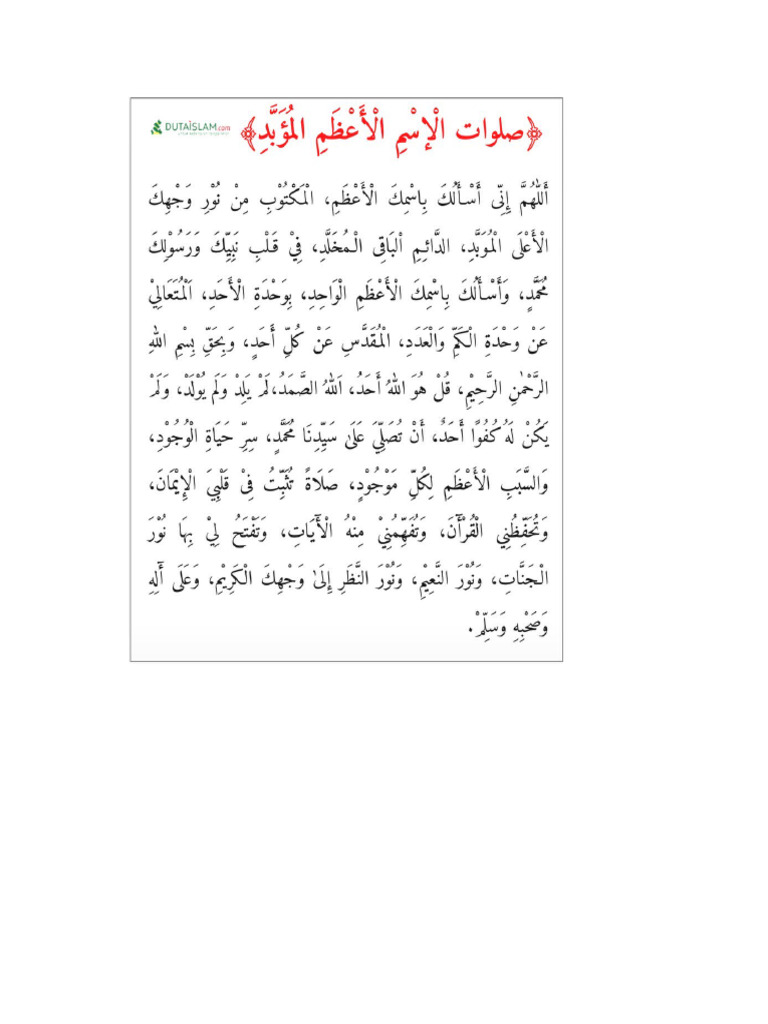 ﴿صلوات الْإِسْمِ الْأَعْظَمِ الْمُؤَبَّدِ﴾
DUTAISLAM.com
أَللّٰهُمَّ إِنِّى أَسْأَلُكَ بِاسْمِكَ الْأَعْظَمِ، الْمَكْتُوْبِ مِنْ نُوْرِ وَجْهِكَ
الْأَعْلَى الْمُوَبَّدِ، الدَّائِمِ اْلبَاقِى الْمُخَلَّدِ، فِيْ قَلْبِ نَبِيِّكَ وَرَسُوْلِكَ
مُحَمَّدٍ، وَأَسْأَلُكَ بِاسْمِكَ الْأَعْظَمِ الْوَاحِدِ، بِوَحْدَةِ الْأَحَدِ، اَلْمُتَعَالِيْ
عَنْ وَحْدَةِ الْكَمِّ وَالْعَدَدِ، الْمُقَدَّسِ عَنْ كُلِّ أَحَدٍ، وَبِحَقِّ بِسْمِ اللهِ
الرَّحْمٰنِ الرَّحِيْمِ، قُلْ هُوَ اللهُ أَحَدُ، اَللهُ الصَّمَدُ،لَمْ يَلِدْ وَلَم يُوْلَدْ، وَلَمْ
يَكُنْ لَهُ كُفُوًا أَحَدٌ، أَنْ تُصَلِّيَ عَلَى سَيِّدِنَا مُحَمَّدٍ، سِرِّ حَيَاةِ الْوُجُوْدِ،
وَالسَّبَبِ الْأَعْظَمِ لِكُلِّ مَوْجُوْدٍ، صَلَاةً تُثَبِّتُ فِىْ قَلْبِيَ الْإِيْمَانَ،
وَتُحَفِّظُنِي الْقُرْأٰنَ، وَتُفَهِّمُنِيْ مِنْهُ الْأٰيَاتِ، وَتَفْتَحُ لِيْ بِهَا نُوْرَ
الْجَنَّاتِ، وَنُوْرَ النَّعِيْمِ، وَنُوْرَ النَّظَرِ إِلَىٰ وَجْهِكَ الْكَرِيْمِ، وَعَلَى أٰلِهِ
وَصَحْبِهِ وَسَلِّمْ.